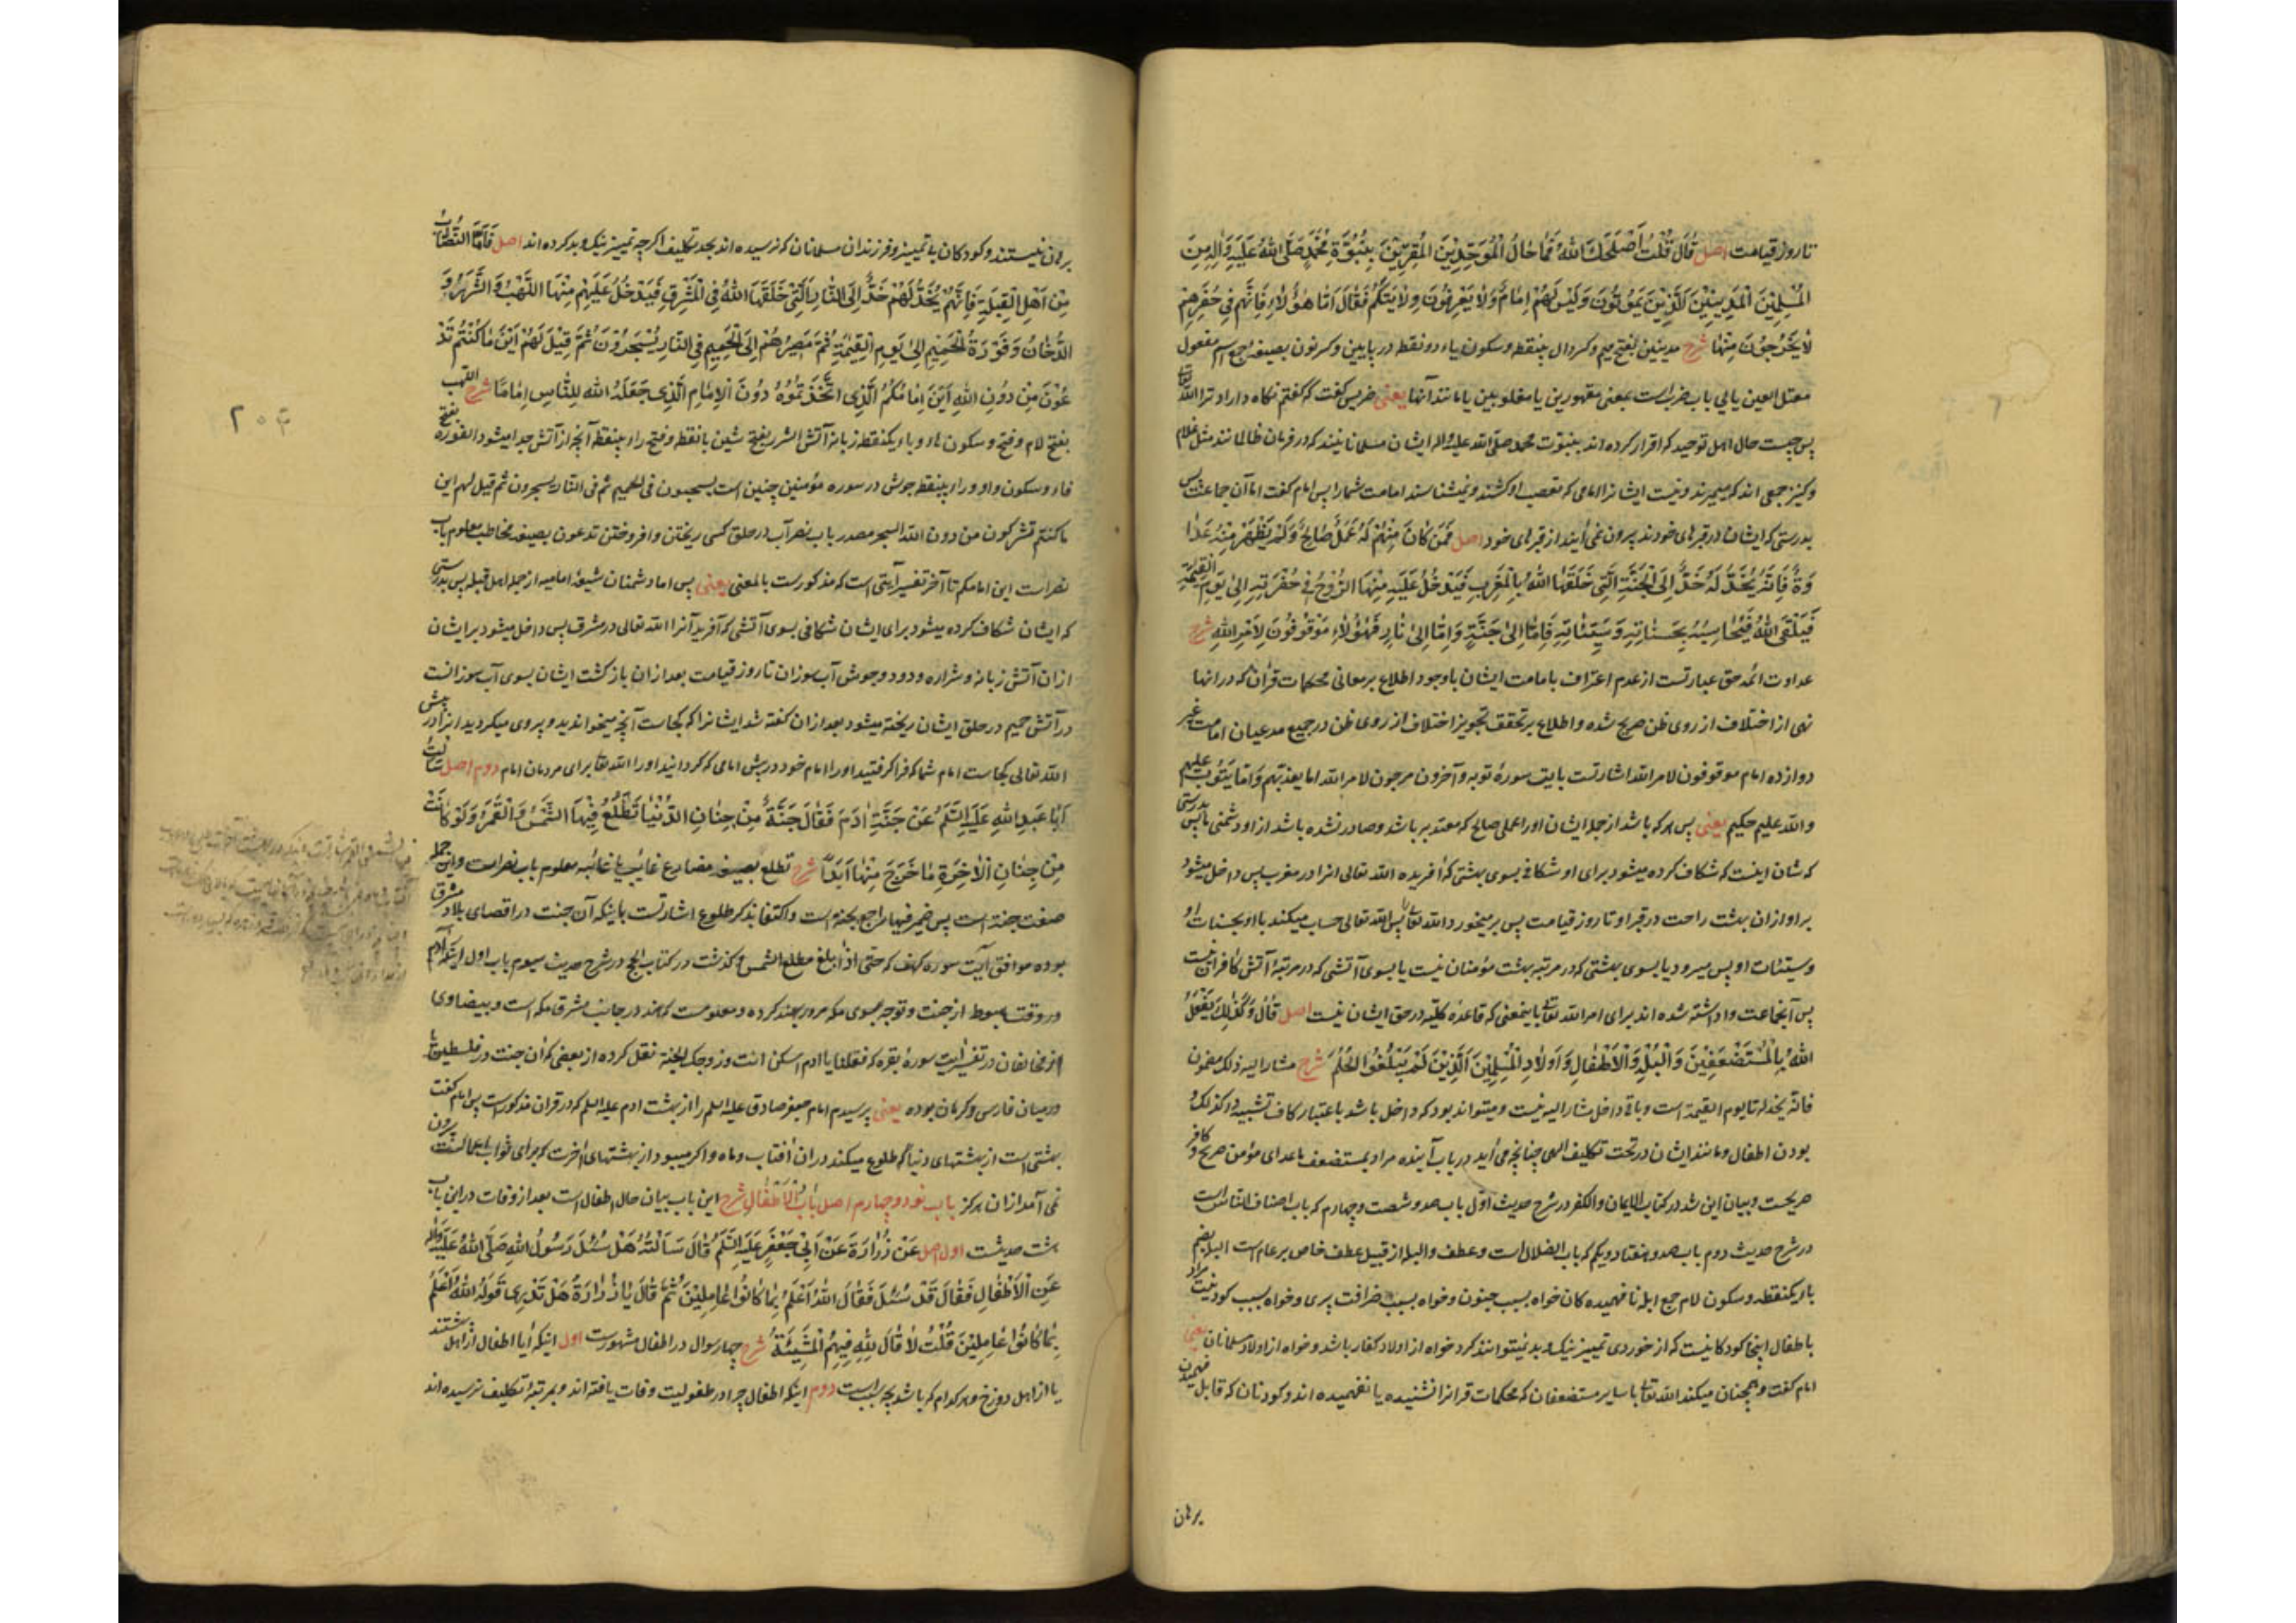 تا روز قیامت اصل قَالَ قُلْتُ أَصْلَحَكَ اللهُ فَمَا حَالُ الْمُوَحِّدِينَ الْمُقِرِّينَ بِنُبُوَّةِ مُحَمَّدٍ صَلَّى اللهُ عَلَيْهِ وَآلِهِ مِنَ
الْمُسْلِمِينَ الْمَدِينِينَ الَّذِينَ يَمُوتُونَ وَلَيْسَ لَهُمْ إِمَامٌ وَلَا يَعْرِفُونَ وِلَايَتَكُمْ فَقَالَ أَمَّا هٰؤُلَاءِ فَإِنَّهُمْ فِي حُفَرِهِمْ
لَا يَخْرُجُونَ مِنْهَا شرح مدینین بفتح میم و کسر دال بینقطه و سکون یاء دو نقطه در پایین و کسر نون بصیغه جمع اسم مفعول
معتل العین یایی باب ضرب است بمعنی مقهورین یا مغلوبین یا مانند آنها یعنی ضریس گفت که گفتم نگاه دارد ترا الله تعالی
پس چیست حال اهل توحید که اقرار کرده اند بنبوت محمد صلی الله علیه واله ایشان مسلمانانیند که در فرمان ظالمانند مثل غلام
و کنیز جمعی اند که میمیرند و نیست ایشانرا امامی که تعصب او کشند و نمیشناسند امامت شمارا پس امام گفت اما آن جماعت پس
بدرستی که ایشان در قبرهای خودند بیرون نمی آیند از قبرهای خود اصل فَمَنْ كَانَ مِنْهُمْ لَهُ عَمَلٌ صَالِحٌ وَلَمْ يَظْهَرْ مِنْهُ عَدَا
وَةٌ فَإِنَّهُ يُخَدُّ لَهُ خَدٌّ إِلَى الْجَنَّةِ الَّتِي خَلَقَهَا اللهُ بِالْمَغْرِبِ فَيَدْخُلُ عَلَيْهِ مِنْهَا الرَّوْحُ فِي حُفْرَتِهِ إِلَى يَوْمِ الْقِيٰمَةِ
فَيَلْقَى اللهَ فَيُحَاسِبُهُ بِحَسَنَاتِهِ وَسَيِّئَاتِهِ فَإِمَّا إِلَى جَنَّةٍ وَإِمَّا إِلَى نَارٍ فَهٰؤُلَاءِ مَوْقُوفُونَ لِأَمْرِ اللهِ شرح
عداوت ائمه حق عبارتست از عدم اعتراف بامامت ایشان با وجود اطلاع بر معانی محکمات قران که در آنها
نهی از اختلاف از روی ظن صریح شده و اطلاع بر تحقق تجویز اختلاف از روی ظن در جمیع مدعیان امامت غیر
دوازده امام موقوفون لامر الله اشارتست بآیت سورهٔ توبه و آخرون مرجون لامر الله اما یعذبهم و اما یتوب علیهم
والله علیم حکیم یعنی پس هر که باشد از جمله ایشان او را عملی صالح که معتد به باشد و صادر نشده باشد از او دشمنی ما پس بدرستی
که شان اینست که شکاف کرده میشود برای او شکافی بسوی بهشتی که آفریده الله تعالی انرا در مغرب پس داخل میشود
بر او از ان بهشت راحت در قبر او تا روز قیامت پس بر میخورد الله تعالی را پس الله تعالی حساب میکند با او بحسنات او
و سیئات او پس میرود یا بسوی بهشتی که در مرتبه بهشت مؤمنان نیست یا بسوی آتشی که در مرتبهٔ آتش کافران نیست
پس آنجماعت واداشته شده اند برای امر الله تعالی باینمعنی که قاعدهٔ کلیه در حق ایشان نیست اصل قَالَ وَكَذٰلِكَ يَفْعَلُ
اللهُ بِالْمُسْتَضْعَفِينَ وَالْبُلْهِ وَالْأَطْفَالِ وَأَوْلَادِ الْمُسْلِمِينَ الَّذِينَ لَمْ يَبْلُغُوا الْحُلُمَ شرح مشار الیه ذلک مضمون
فانه یخد له تا یوم القیمة است و باقی داخل مشار الیه نیست و میتواند بود که داخل باشد باعتبار کاف تشبیه در کذلک
بودن اطفال و مانند ایشان در تحت تکلیف الهی چنانچه می آید در باب آینده مراد بمستضعف ماعدای مؤمن صریح و کافر
صریحست و بیان این شد در کتاب الایمان والکفر در شرح حدیث اوّل باب صد و شصت و چهارم که باب اصناف الناس است
در شرح حدیث دوم باب صد و هفتاد و یکم که باب الضلال است و عطف والبله از قبیل عطف خاص بر عام است البله بضم
باء یکنقطه و سکون لام جمع ابله نافهمیده کان خواه بسبب جنون و خواه بسبب خرافت پیری و خواه بسبب کودنیت مراد
باطفال اینجا کودکانیست که از خوردی تمییز نیک و بد نمیتوانند کرد خواه از اولاد کفار باشد و خواه از اولاد مسلمانان یعنی
امام گفت و همچنان میکند الله تعالی با سایر مستضعفان که محکمات قرانرا نشنیده یا نفهمیده اند و کودنان که قابل فهمیدن
برهان
۲۰۳
برهان نیستند و کودکان با تمییز و فرزندان مسلمانان که نرسیده اند بحد تکلیف اگرچه تمییز نیک و بد کرده اند اصل فَأَمَّا النُّصَّابُ
مِنْ أَهْلِ الْقِبْلَةِ فَإِنَّهُمْ يُخَدُّ لَهُمْ خَدٌّ إِلَى النَّارِ الَّتِي خَلَقَهَا اللهُ فِي الْمَشْرِقِ فَيَدْخُلُ عَلَيْهِمْ مِنْهَا اللَّهَبُ وَالشَّرَرُ وَ
الدُّخَانُ وَفَوْرَةُ الْحَمِيمِ إِلَى يَوْمِ الْقِيٰمَةِ ثُمَّ مَصِيرُهُمْ إِلَى الْحَمِيمِ فِي النَّارِ يُسْجَرُونَ ثُمَّ قِيلَ لَهُمْ أَيْنَ مَا كُنْتُمْ تَدْ
عُونَ مِنْ دُونِ اللهِ أَيْنَ إِمَامُكُمُ الَّذِي اتَّخَذْتُمُوهُ دُونَ الْإِمَامِ الَّذِي جَعَلَهُ اللهُ لِلنَّاسِ إِمَامًا شرح اللهب
بفتح لام و فتح و سکون هاء و باء یکنقطه زبانه آتش الشرر بفتح شین با نقطه و فتح راء بینقطه آنچه از آتش جدا میشود الفورة بفتح
فاء و سکون واو و راء بینقطه جوش در سوره مؤمنین چنین است یسحبون فی الحمیم ثم فی النار یسجرون ثم قیل لهم این
ما کنتم تشرکون من دون الله السجر مصدر باب نصر آب در حلق کسی ریختن و افروختن تدعون بصیغه مخاطب معلوم باب
نصر است این امامکم تا آخر تفسیر آیتی است که مذکور است بالمعنی یعنی پس اما دشمنان شیعهٔ امامیه از جمله اهل قبله پس بدرستی
که ایشان شکاف کرده میشود برای ایشان شکافی بسوی آتشی که آفرید آنرا الله تعالی در مشرق پس داخل میشود بر ایشان
از ان آتش زبانه و شراره و دود و جوش آب سوزان تا روز قیامت بعد از ان بازگشت ایشان بسوی آب سوزانست
در آتش حمیم در حلق ایشان ریخته میشود بعد از ان گفته شد ایشانرا که کجاست آنچه میخواندید و پیروی میکردید انرا در پیش
الله تعالی کجاست امام شما که فرا گرفتید او را امام خود در پیش امامی که گردانید او را الله تعالی برای مردمان امام دوم اصل سَأَلْتُ
أَبَا عَبْدِ اللهِ عَلَيْهِ السَّلَمُ عَنْ جَنَّةِ آدَمَ فَقَالَ جَنَّةٌ مِنْ جِنَانِ الدُّنْيَا تَطْلُعُ فِيهَا الشَّمْسُ وَالْقَمَرُ وَلَوْ كَانَتْ
مِنْ جِنَانِ الْآخِرَةِ مَا خَرَجَ مِنْهَا أَبَدًا شرح تطلع بصیغه مضارع غایب یا غائبه معلوم باب نصر است و این جمله
صفت جنة است پس ضمیر فیها راجع بجنة است و اکتفا بذکر طلوع اشارتست باینکه آن جنت در اقصای بلاد مشرق
بوده موافق آیت سوره کهف که حتی اذا بلغ مطلع الشمس و گذشت در کتاب الحج در شرح حدیث سیوم باب اول اینکه آدم
در وقت هبوط از جنت و توجه بسوی مکه مرور بهند کرده و معلومست که هند در جانب مشرق مکه است و بیضاوی
از مخالفان در تفسیر آیت سورهٔ بقره که فقلنا یا ادم اسکن انت و زوجک الجنة نقل کرده از بعضی که ان جنت در فلسطین یا
در میان فارسی و کرمان بوده یعنی پرسیدم امام جعفر صادق علیه السلم را از بهشت ادم علیه السلم که در قران مذکور است پس امام گفت
بهشتی است از بهشتهای دنیا که طلوع میکند در ان آفتاب و ماه و اگر میبود از بهشتهای آخرت که برای ثواب اعمالست بیرون
نمی آمد از ان هرگز باب نود و چهارم اصل بَابُ الْأَطْفَالِ شرح این باب بیان حال اطفال است بعد از وفات در این باب
هشت حدیثست اول اصل عَنْ زُرَارَةَ عَنْ أَبِي جَعْفَرٍ عَلَيْهِ السَّلَمُ قَالَ سَأَلْتُهُ هَلْ سُئِلَ رَسُولُ اللهِ صَلَّى اللهُ عَلَيْهِ وَآلِهِ
عَنِ الْأَطْفَالِ فَقَالَ قَدْ سُئِلَ فَقَالَ اللهُ أَعْلَمُ بِمَا كَانُوا عَامِلِينَ ثُمَّ قَالَ يَا زُرَارَةُ هَلْ تَدْرِي مَا قَوْلُهُ اللهُ أَعْلَمُ
بِمَا كَانُوا عَامِلِينَ قُلْتُ لَا قَالَ لِلّٰهِ فِيهِمُ الْمَشِيئَةُ شرح چهار سوال در اطفال مشهور است اول اینکه آیا اطفال از اهل بهشتند
یا از اهل دوزخ و هر کدام که باشد بچه سبب است دوم اینکه اطفال چرا در طفولیت وفات یافته اند و بمرتبهٔ تکلیف نرسیده اند